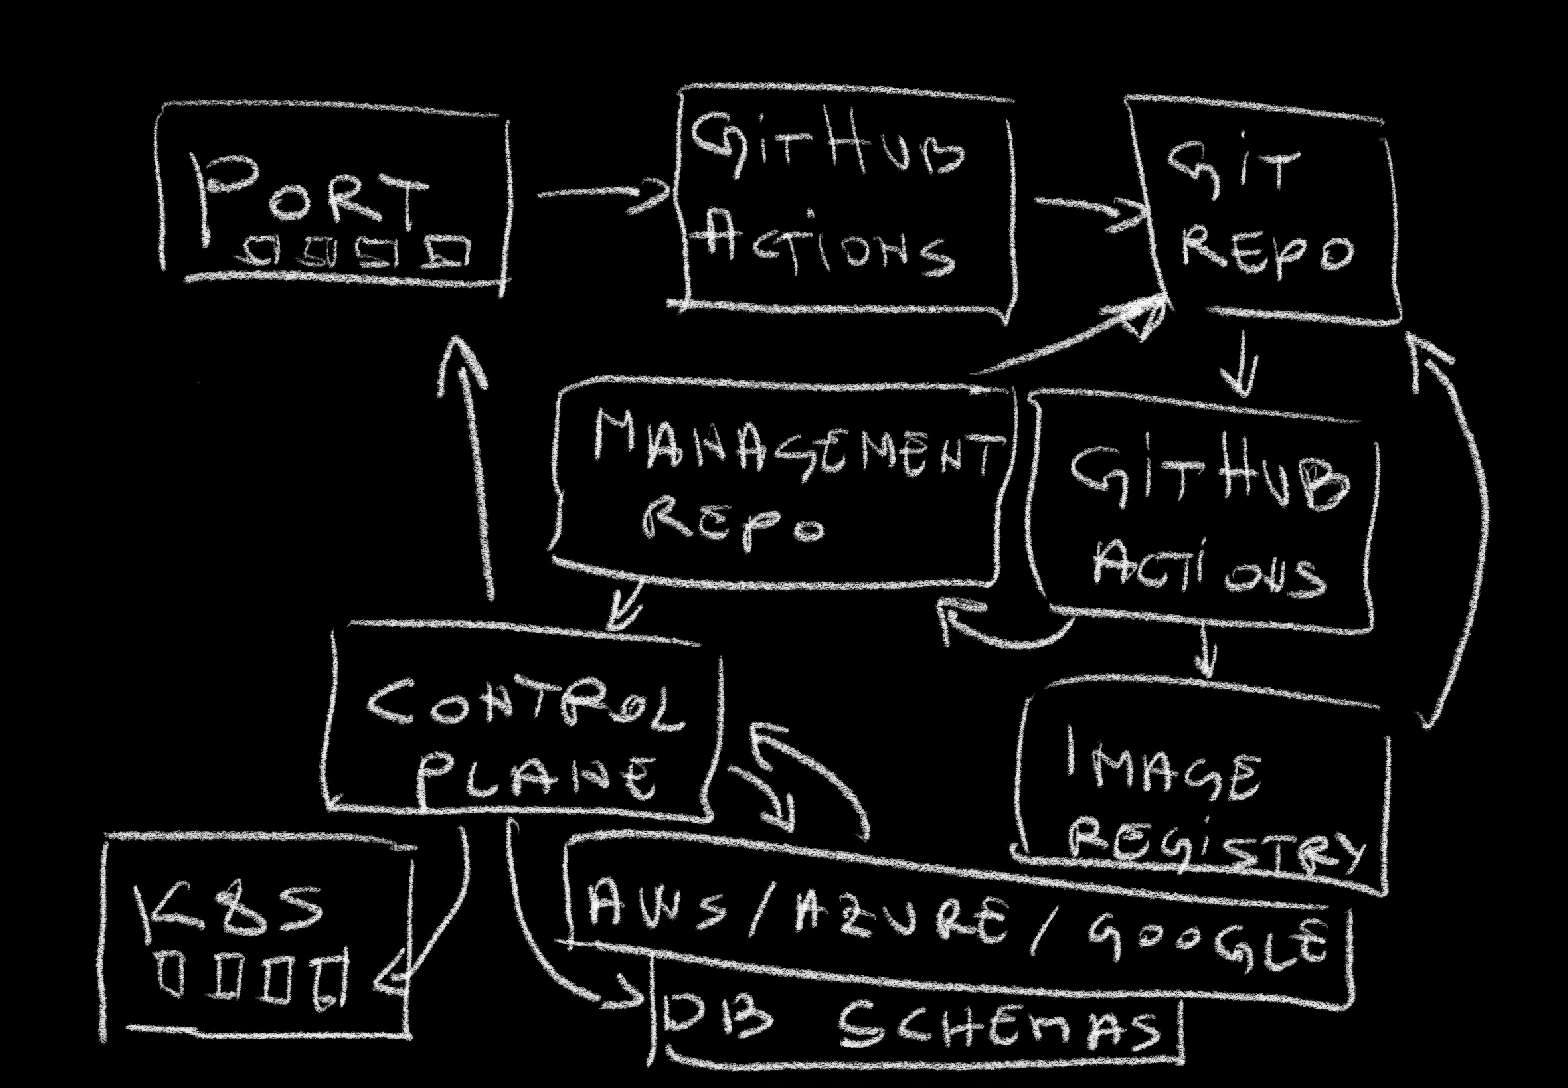 PORT
GitHUB
ACTiONS
GiT
REPO
MANAGEMENT
REPO
GiTHUB
ACTiONS
CONTROL
PLANE
IMAGE
REGiSTRY
K8S
AWS / AZURE / GOOGLE
DB SCHEMAS